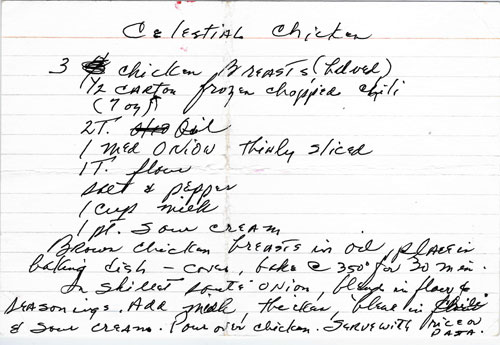 Celestial Chicken
3 chicken Breasts, (halved)
1/2 carton frozen chopped chili
(7 oz)
2T. Oil
1 med ONION thinly sliced
1T. flour
salt & pepper
1 cup milk
1 pt. Sour CREAM
Brown chicken breasts in oil, place in
baking dish – cover, bake @ 350° for 30 min.
In skillet saute onion, blend in flour &
seasonings. Add milk, thicken, blend in chili
& sour cream. Pour over chicken. Serve with rice or
pasta.